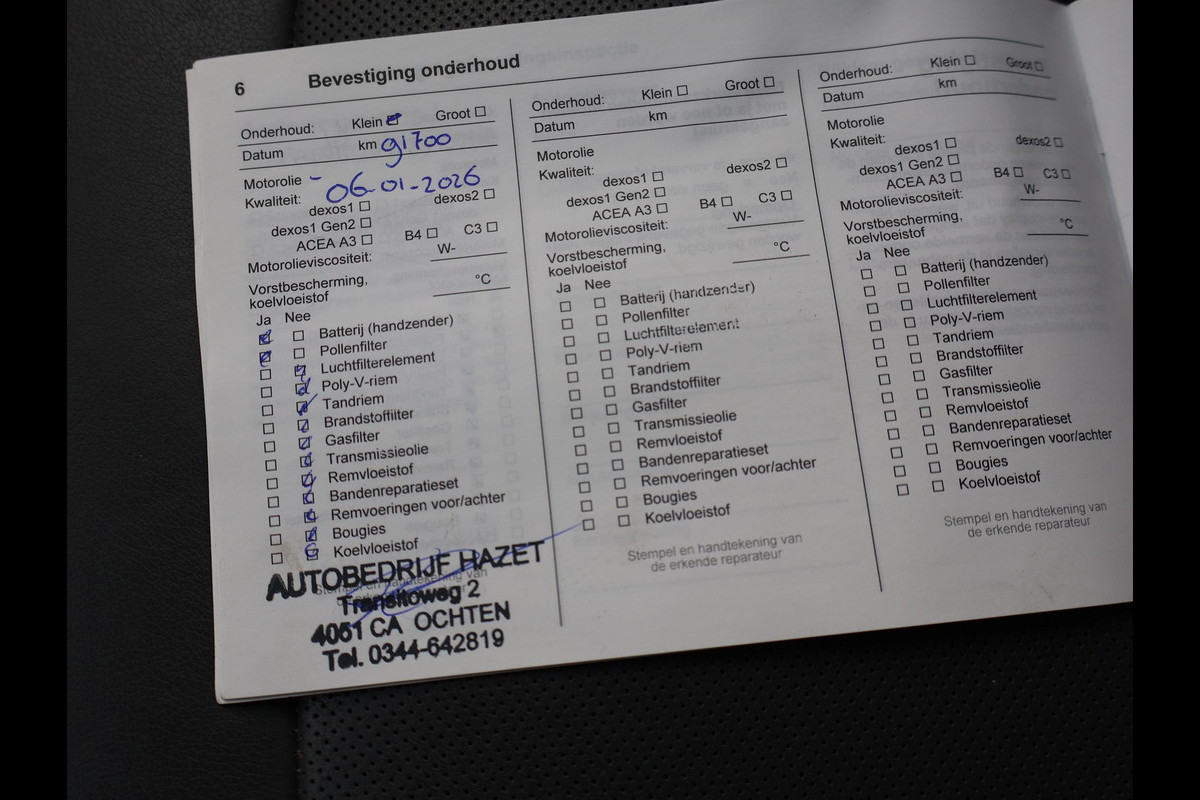 6 Bevestiging onderhoud
Onderhoud: Klein Groot
Datum km 91700
Motorolie - 06-01-2026
Kwaliteit:
dexos1 dexos2
dexos1 Gen2
ACEA A3 B4 C3
Motorolieviscositeit: W-
Vorstbescherming,
koelvloeistof °C
Ja Nee
Batterij (handzender)
Pollenfilter
Luchtfilterelement
Poly-V-riem
Tandriem
Brandstoffilter
Gasfilter
Transmissieolie
Remvloeistof
Bandenreparatieset
Remvoeringen voor/achter
Bougies
Koelvloeistof
Stempel en handtekening van
AUTOBEDRIJF HAZET
Transitoweg 2
4051 CA OCHTEN
Tel. 0344-642819
Onderhoud: Klein Groot
Datum km
Motorolie
Kwaliteit:
dexos1 dexos2
dexos1 Gen2
ACEA A3 B4 C3
Motorolieviscositeit: W-
Vorstbescherming,
koelvloeistof °C
Ja Nee
Batterij (handzender)
Pollenfilter
Luchtfilterelement
Poly-V-riem
Tandriem
Brandstoffilter
Gasfilter
Transmissieolie
Remvloeistof
Bandenreparatieset
Remvoeringen voor/achter
Bougies
Koelvloeistof
Stempel en handtekening van
de erkende reparateur
Onderhoud: Klein Groot
Datum km
Motorolie
Kwaliteit:
dexos1 dexos2
dexos1 Gen2
ACEA A3 B4 C3
Motorolieviscositeit: W-
Vorstbescherming,
koelvloeistof °C
Ja Nee
Batterij (handzender)
Pollenfilter
Luchtfilterelement
Poly-V-riem
Tandriem
Brandstoffilter
Gasfilter
Transmissieolie
Remvloeistof
Bandenreparatieset
Remvoeringen voor/achter
Bougies
Koelvloeistof
Stempel en handtekening van
de erkende reparateur